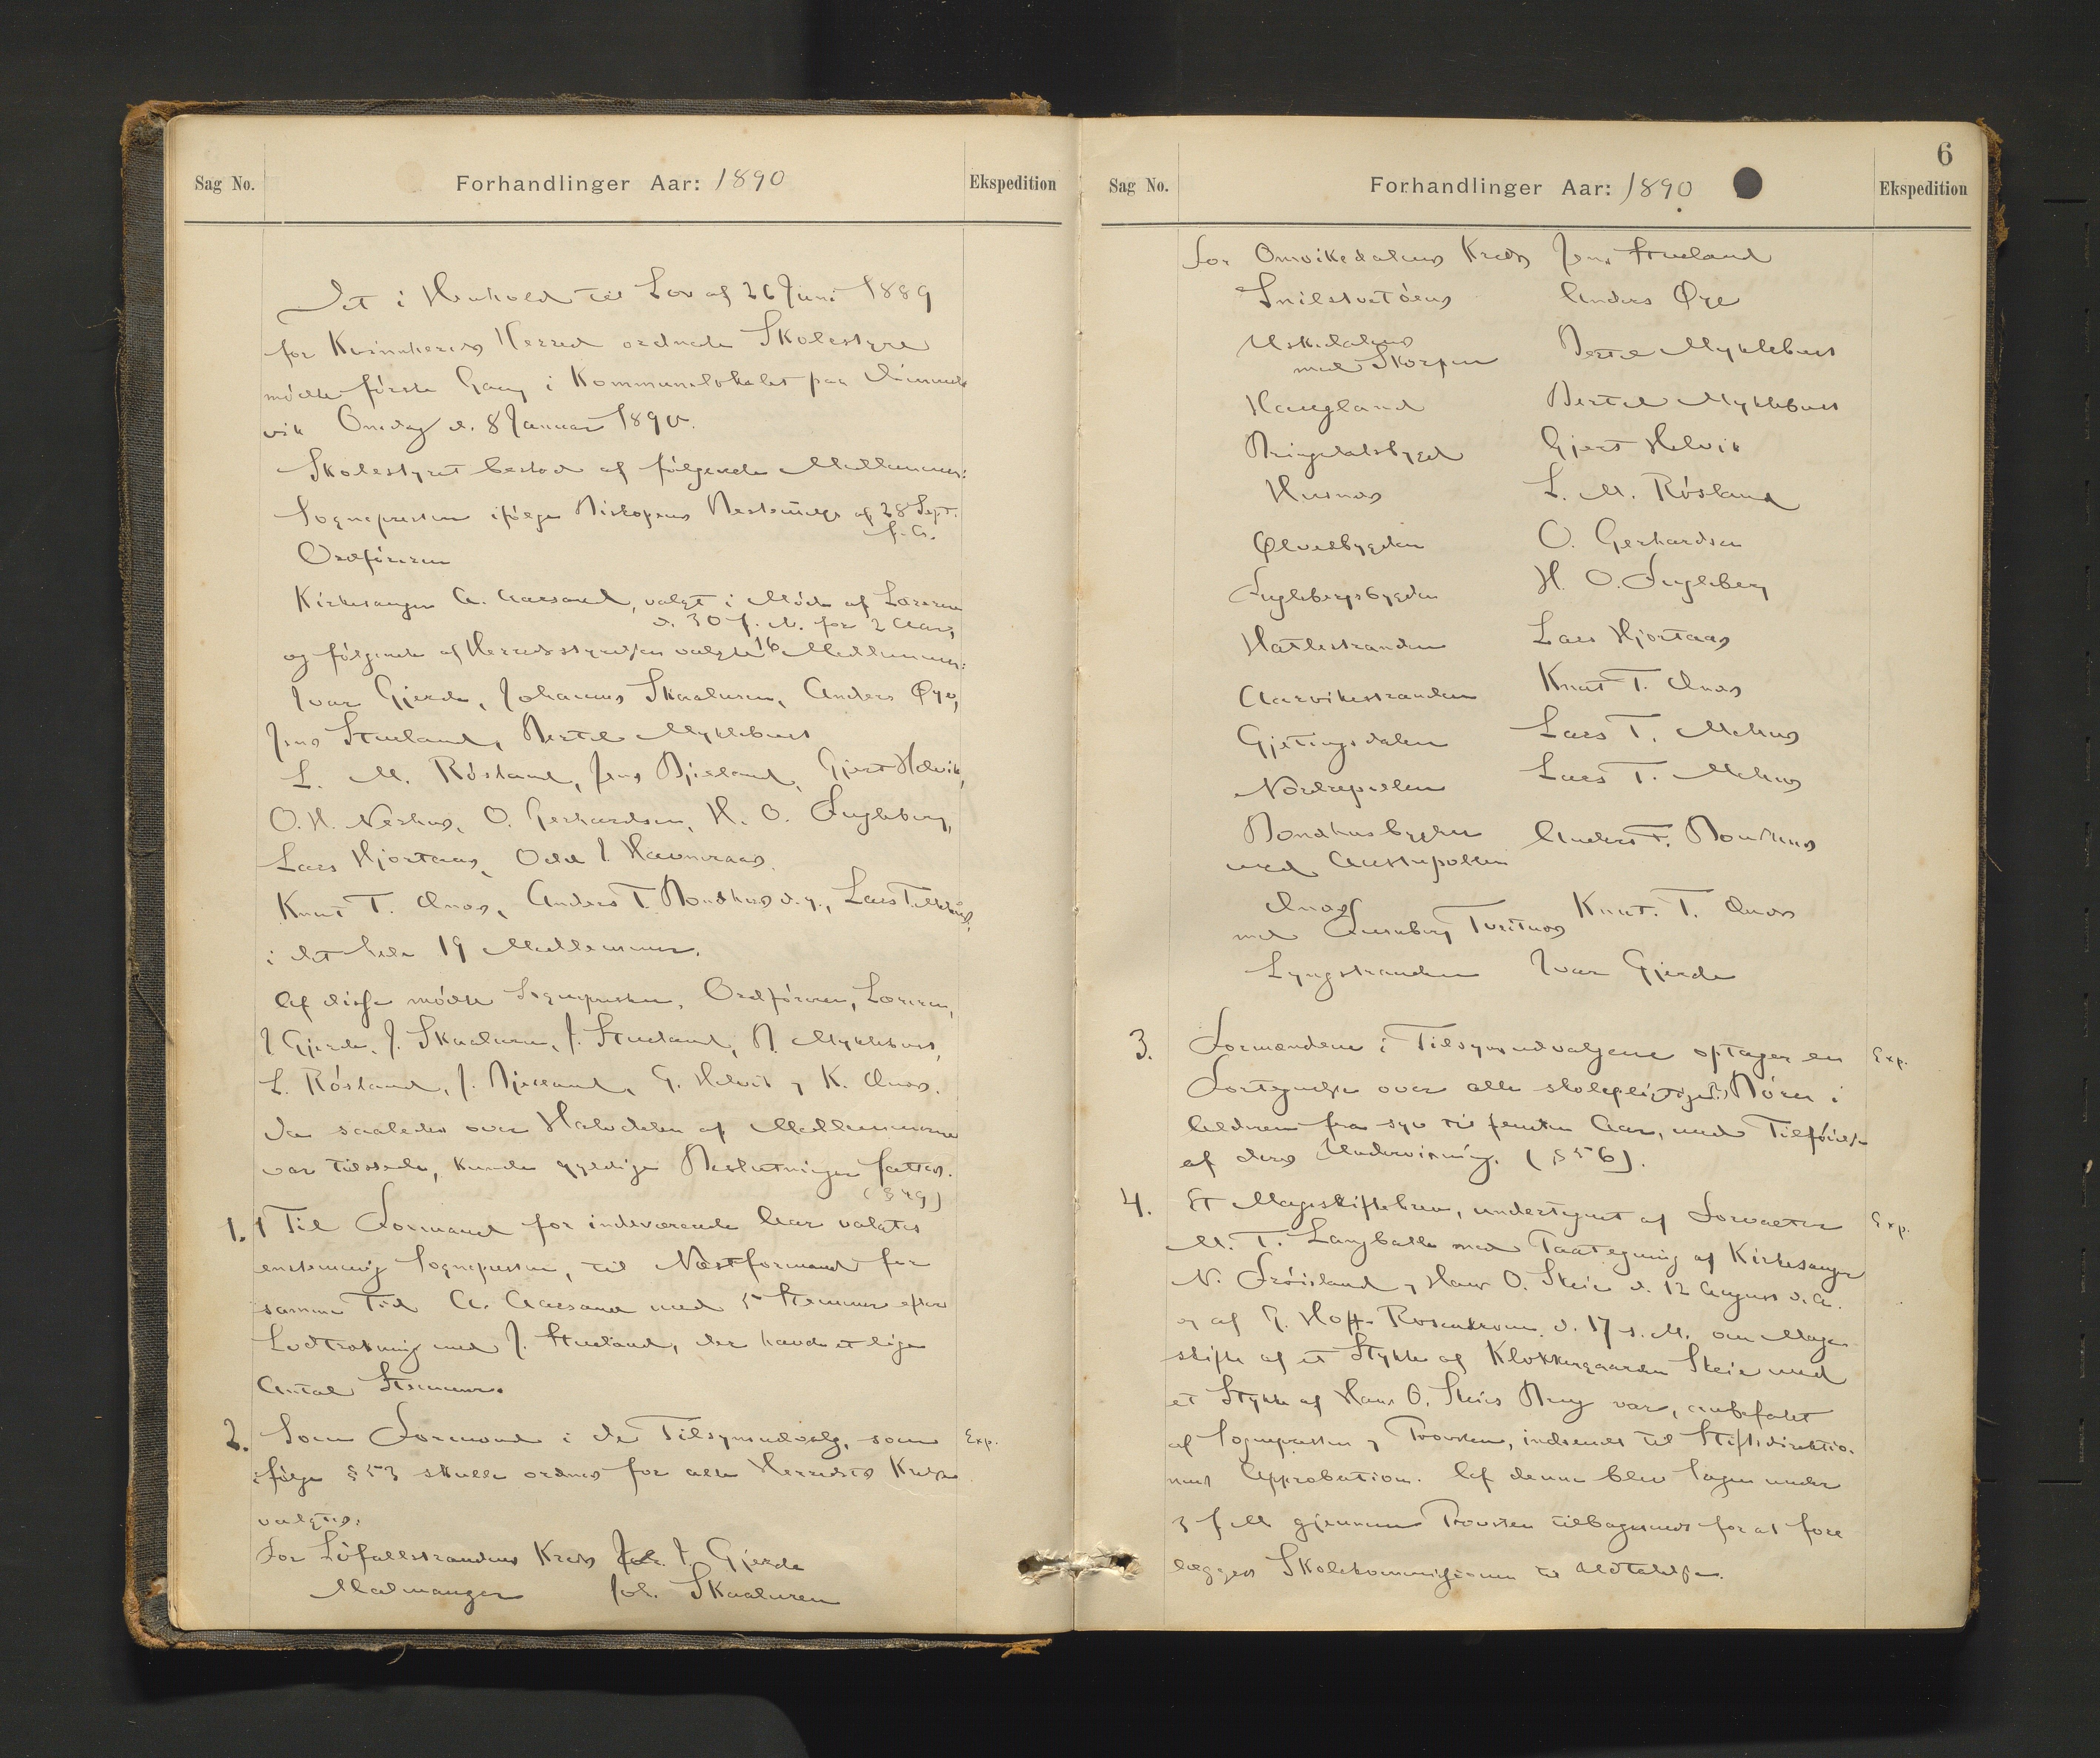 Sag No.
Forhandlinger Aar: 1890
Ekspedition
Det i Henhold til Lov af 26 Juni 1889
for Kvinnherreds Herred ordnede Skolestyre
mødte første Gang i Kommunelokalet paa
vik Onsdag d. 8 Januar 1890.
Skolestyret bestod af følgende Medlemmer:
Sognepresten ifølge Biskopens Bestemmelse af 28 Sept.
f. A.
Ordføreren
Kirkesanger A. Aarsand, valgt i Møde af Lærerne
d. 30 f. M. for 2 Aar,
og følgende af Herredsstyrelsen valgte 16 Medlemmer:
Ivar Gjerde, Johannes Skaaluren, Anders Øye,
Jens Stueland, Bertel Myklebust
L. M. Røsland, Jens Bjelland, Gjert Helvik,
O. H. Neshus, O. Gerhardsen, H. O. Fugleberg,
Lars Hjortaas, Odd I. Havneraas.
Knut T. Ænæs, Anders T. Bondhus d. y., Lars T. Mehus,
i det hele 19 Medlemmer.
Af disse mødte Sognepresten, Ordføreren, Læreren,
I Gjerde, J. Skaaluren, J. Stueland, B. Myklebust,
L. Røsland, J. Bjelland, G. Helvik og K. Ænæs.
Da saaledes over Halvdelen af Medlemmerne
var tilstede, kunde gyldige Beslutninger fattes.
(§ 49)
1. Til Formand for indeværende Aar valgtes
enstemmig Sognepresten, til Næstformand for
samme Tid A. Aarsand med 5 Stemmer efter
Lodtrækning med J. Stueland, der havde et lige
Antal Stemmer.
2. Som Formænd i de Tilsynsudvalg, som Exp.
ifølge § 53 skulle ordnes for alle Herredets Kredse
valgtes:
For Løfallstrandens Kreds I. Gjerde
Malmanger Joh. Skaaluren
6
Sag No.
Forhandlinger Aar: 1890
Ekspedition
for Omvikedalens Kreds Jens Stueland
Snilstvetøens Anders Øye
Uskedalens
med Skorpen Bertel Myklebust
Haugland Bertel Myklebust
Ringdalsbygd Gjert Helvik
Husnæs L. M. Røsland
Ølvesbygden O. Gerhardsen
Fuglebergsbygden H. O. Fugleberg
Hatlestranden Lars Hjortaas
Aarvikestranden Knut T. Ænæs
Gjetingsdalen Lars T. Mehus
Nordrepollen Lars T. Mehus
Bondhusbygden Anders T. Bondhus
med Austrepollen
Ænæs Knut. T. Ænæs
med Furuberg Tveitnæs
Lyngstranden Ivar Gjerde
3. Formændene i Tilsynsudvalgene optager en Exp.
Fortegnelse over alle skolepligtige Børn i
Alderen fra syv til femten Aar, med Tilføielse
af deres Undervisning. (§ 56).
4. Et Mageskiftebrev, undertegnet af Forvalter Exp.
M. T. Langballe med Paategning af Kirkesanger
N. Frøisland og Hans O. Skeie d. 12 August d. A.
og af G. Hoff-Rosenkrone d. 17 s. M. om Mage
skifte af et Stykke af Klokkergaarden Skeie med
et Stykke af Hans O. Skeies Brug var, anbefalet
af Sognepresten og Provsten, indsendt til Stiftsdirektio-
nens Approbation. Af denne blev Sagen under
3 f M gjennem Provsten tilbagesendt for at fore
lægges Skolekommissionen til Udtalelse.